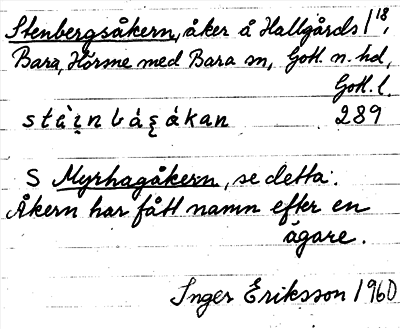 Stenbergsåkern, åker å Hallgårds 1¹⁸,
Bara, Hörsne med Bara sn, Gotl. n. hd,
Gotl. l.
289
S Myrhagåkern, se detta.
Åkern har fått namn efter en
ägare.
Inger Eriksson 1960